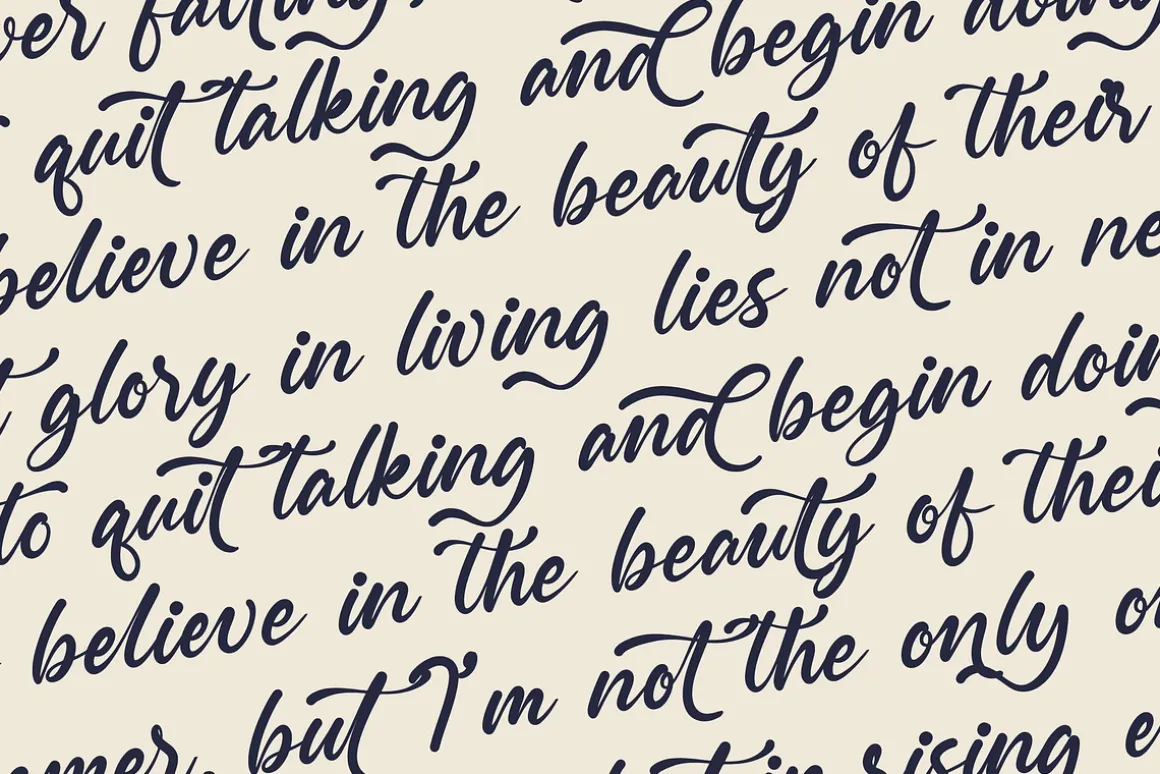 ver falling,
quit talking and begin doing
believe in the beauty of their
glory in living lies not in ne
to quit talking and begin doin
believe in the beauty of thei
mer, but I'm not the only o
t in rising e